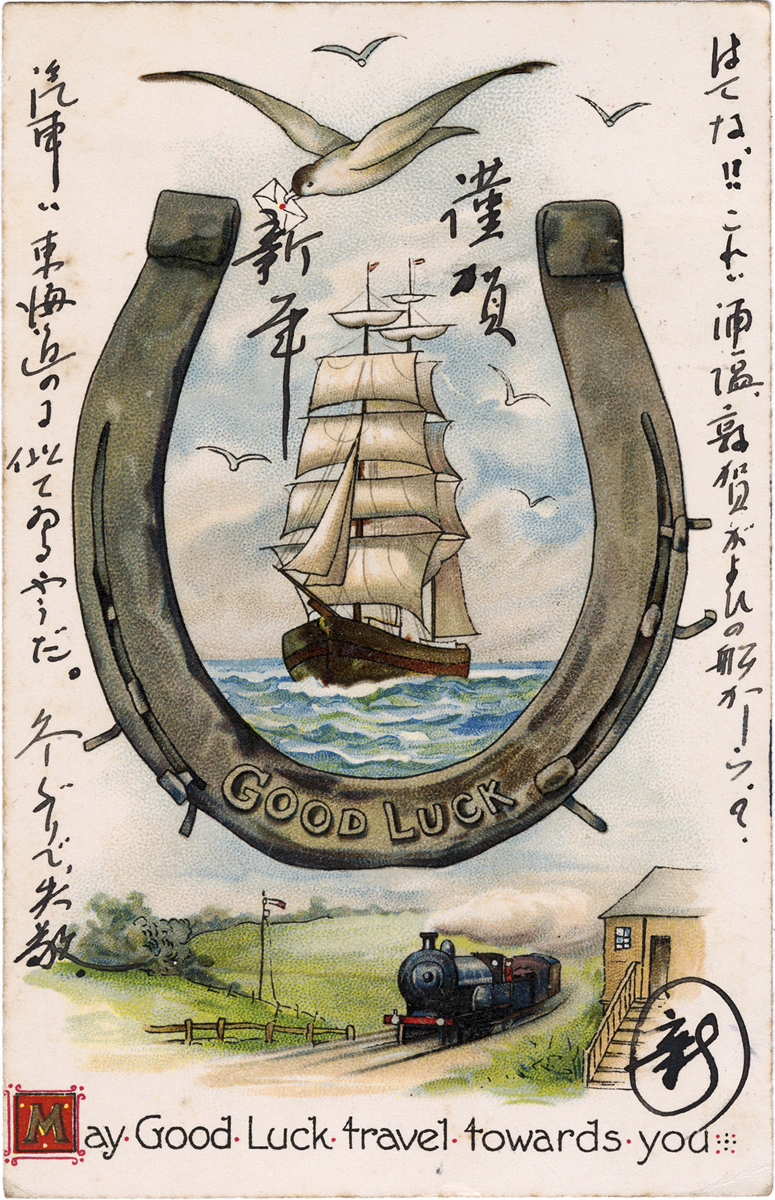 はてな!! これハ浦塩、敦賀がよひの船かしら?
謹賀
新年
汽車ハ東海道のに似てゐるやうだ。 久しぶりで、失敬.
GOOD LUCK
新
May·Good·Luck·travel·towards·you